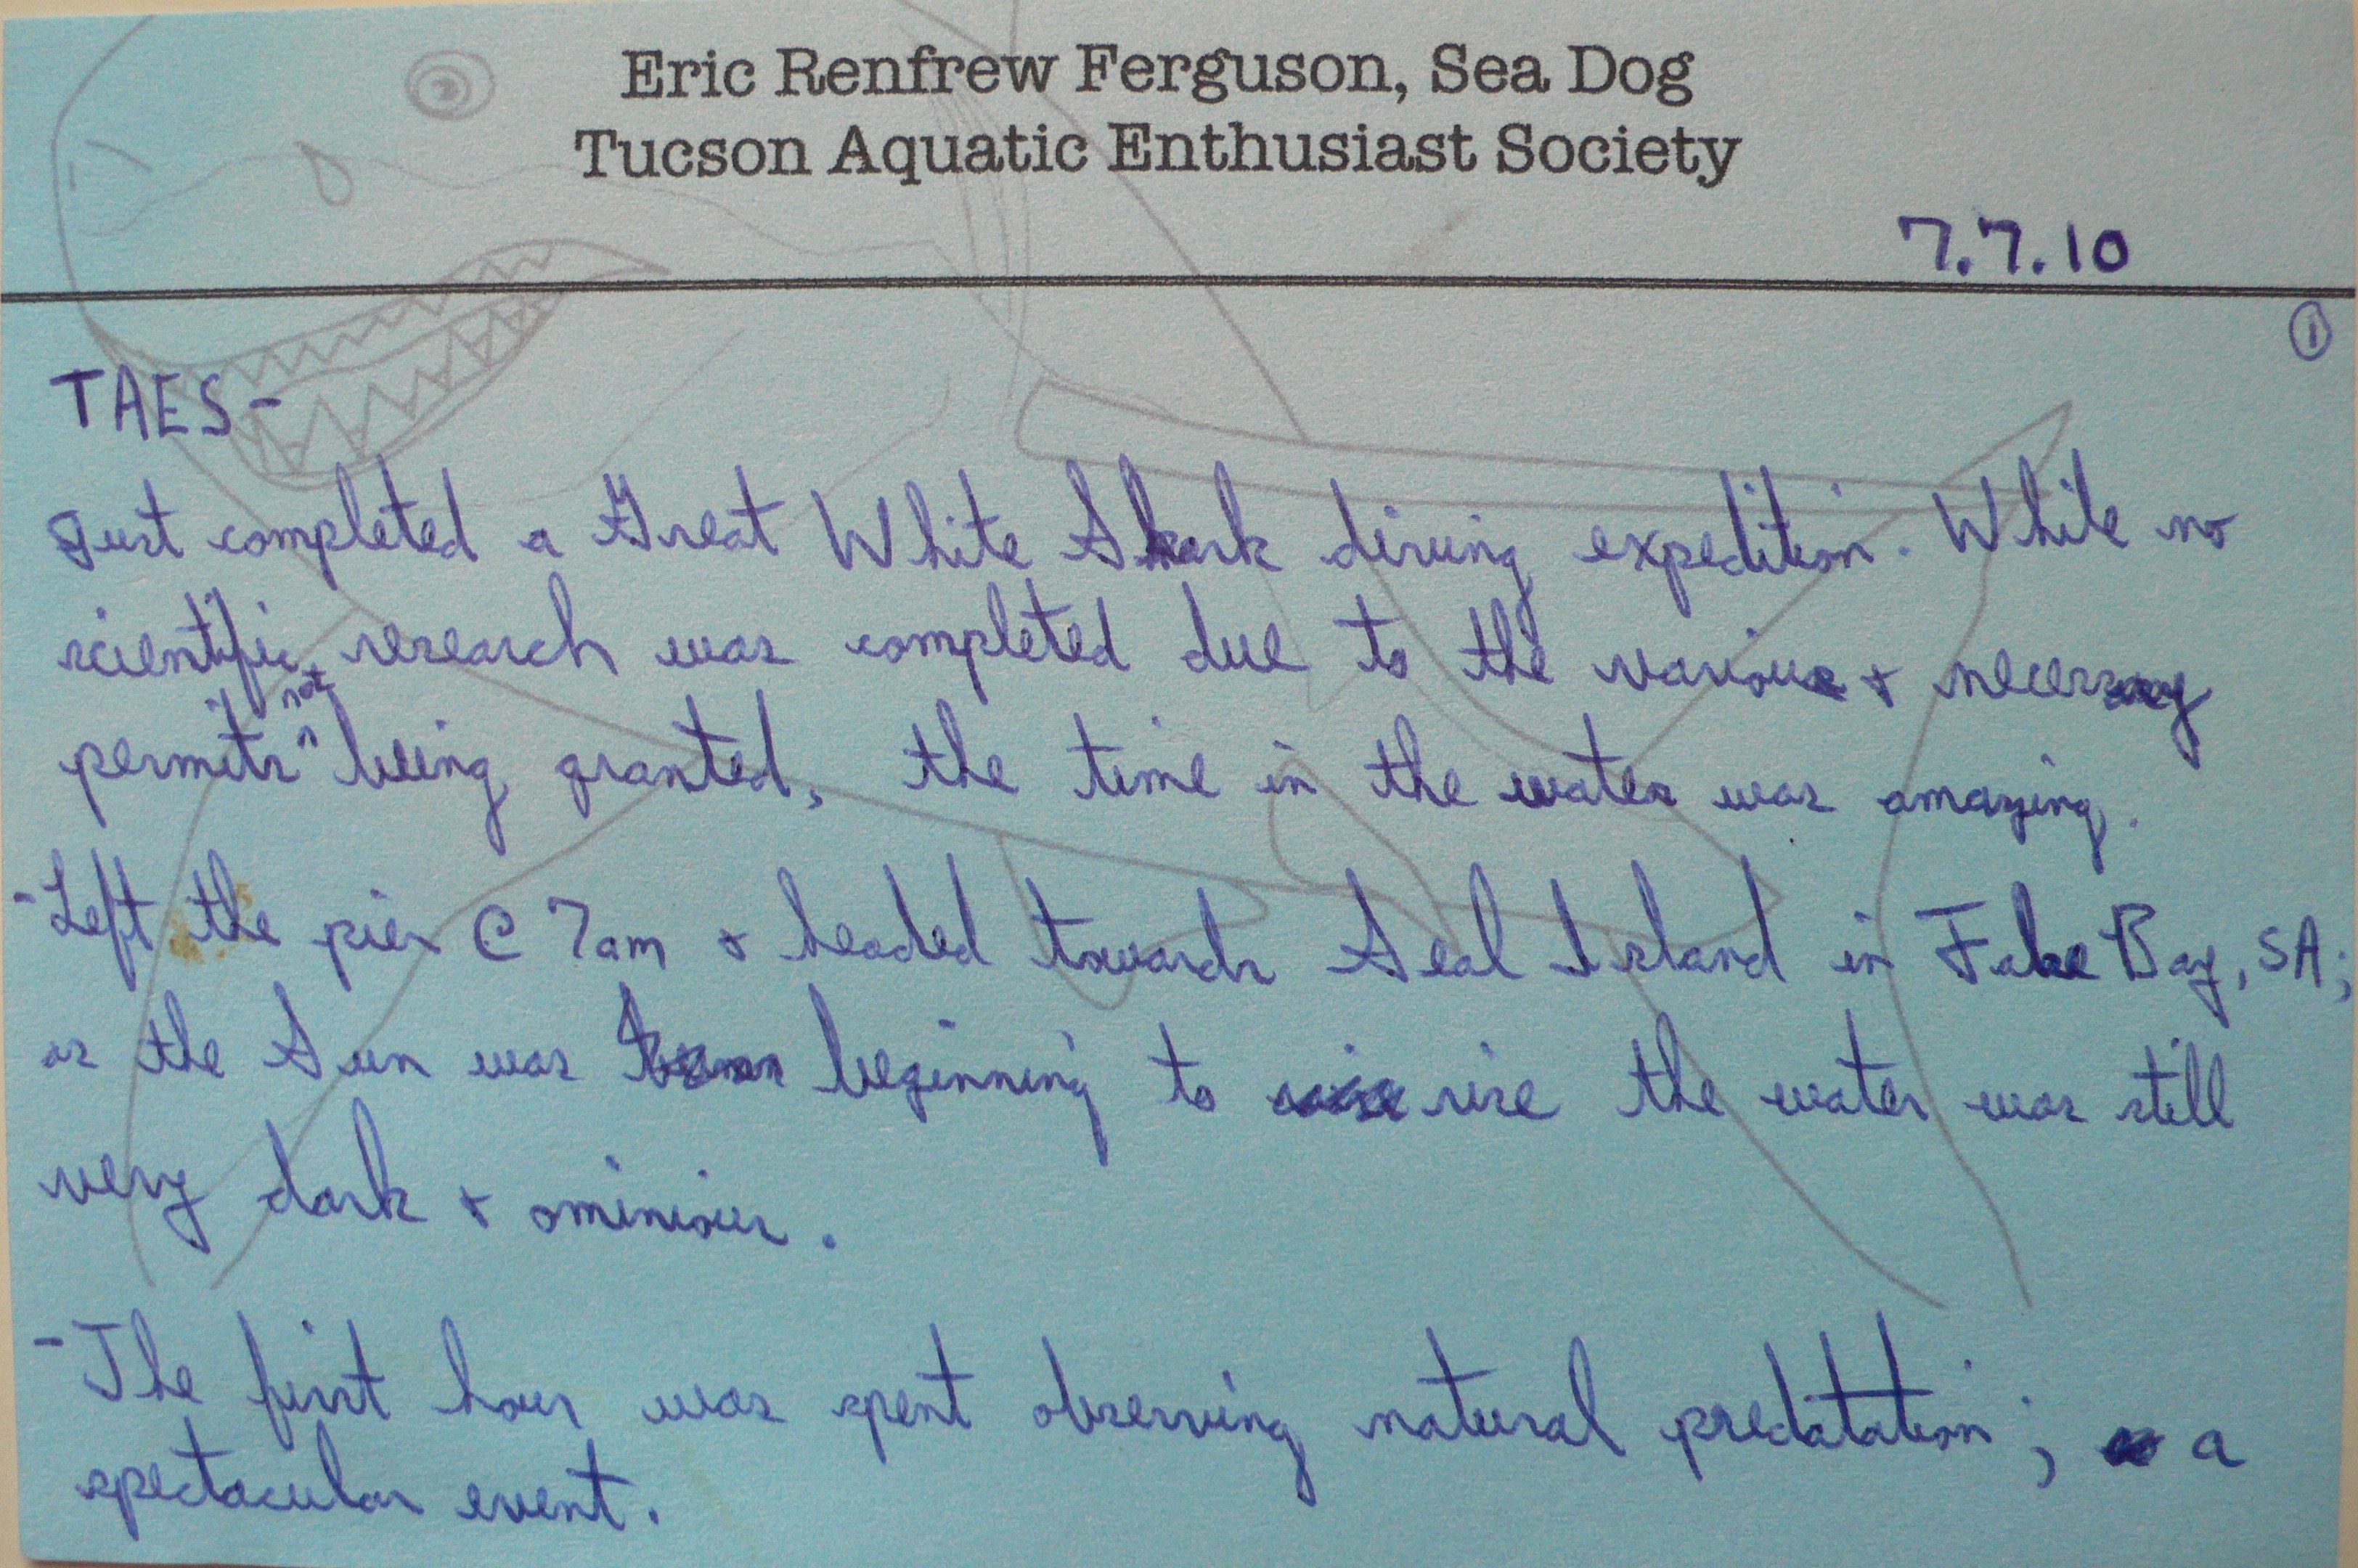 Eric Renfrew Ferguson, Sea Dog
Tucson Aquatic Enthusiast Society
7.7.10
1
TAES-
Just completed a Great White Shark diving expedition. While no
scientific research was completed due to the various & necessary
permits not being granted, the time in the water was amazing.
-Left the pier @ 7am & headed towards Seal Island in False Bay, SA;
as the Sun was beginning to rise the water was still
very dark & ominious.
-The first hour was spent observing natural predatation; a
spectacular event.